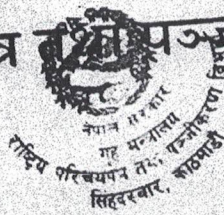 नेपाल सरकार
गृह मन्त्रालय
राष्ट्रिय परिचयपत्र तथा पञ्जीकरण विभाग
सिंहदरवार, काठमाडौं